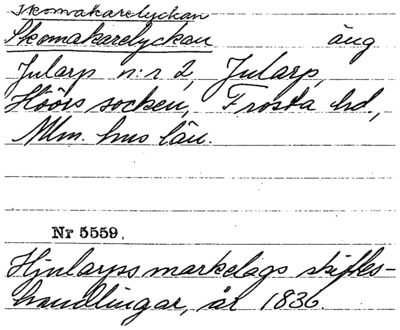 Skomakarelyckan
Skomakarelyckan äng
Jularp n:r 2, Jularp,
Höörs socken, Frosta hd,
Mlm. hus län.
Nr 5559.
Hjularps markelags skifles-
handlingar, år 1836.